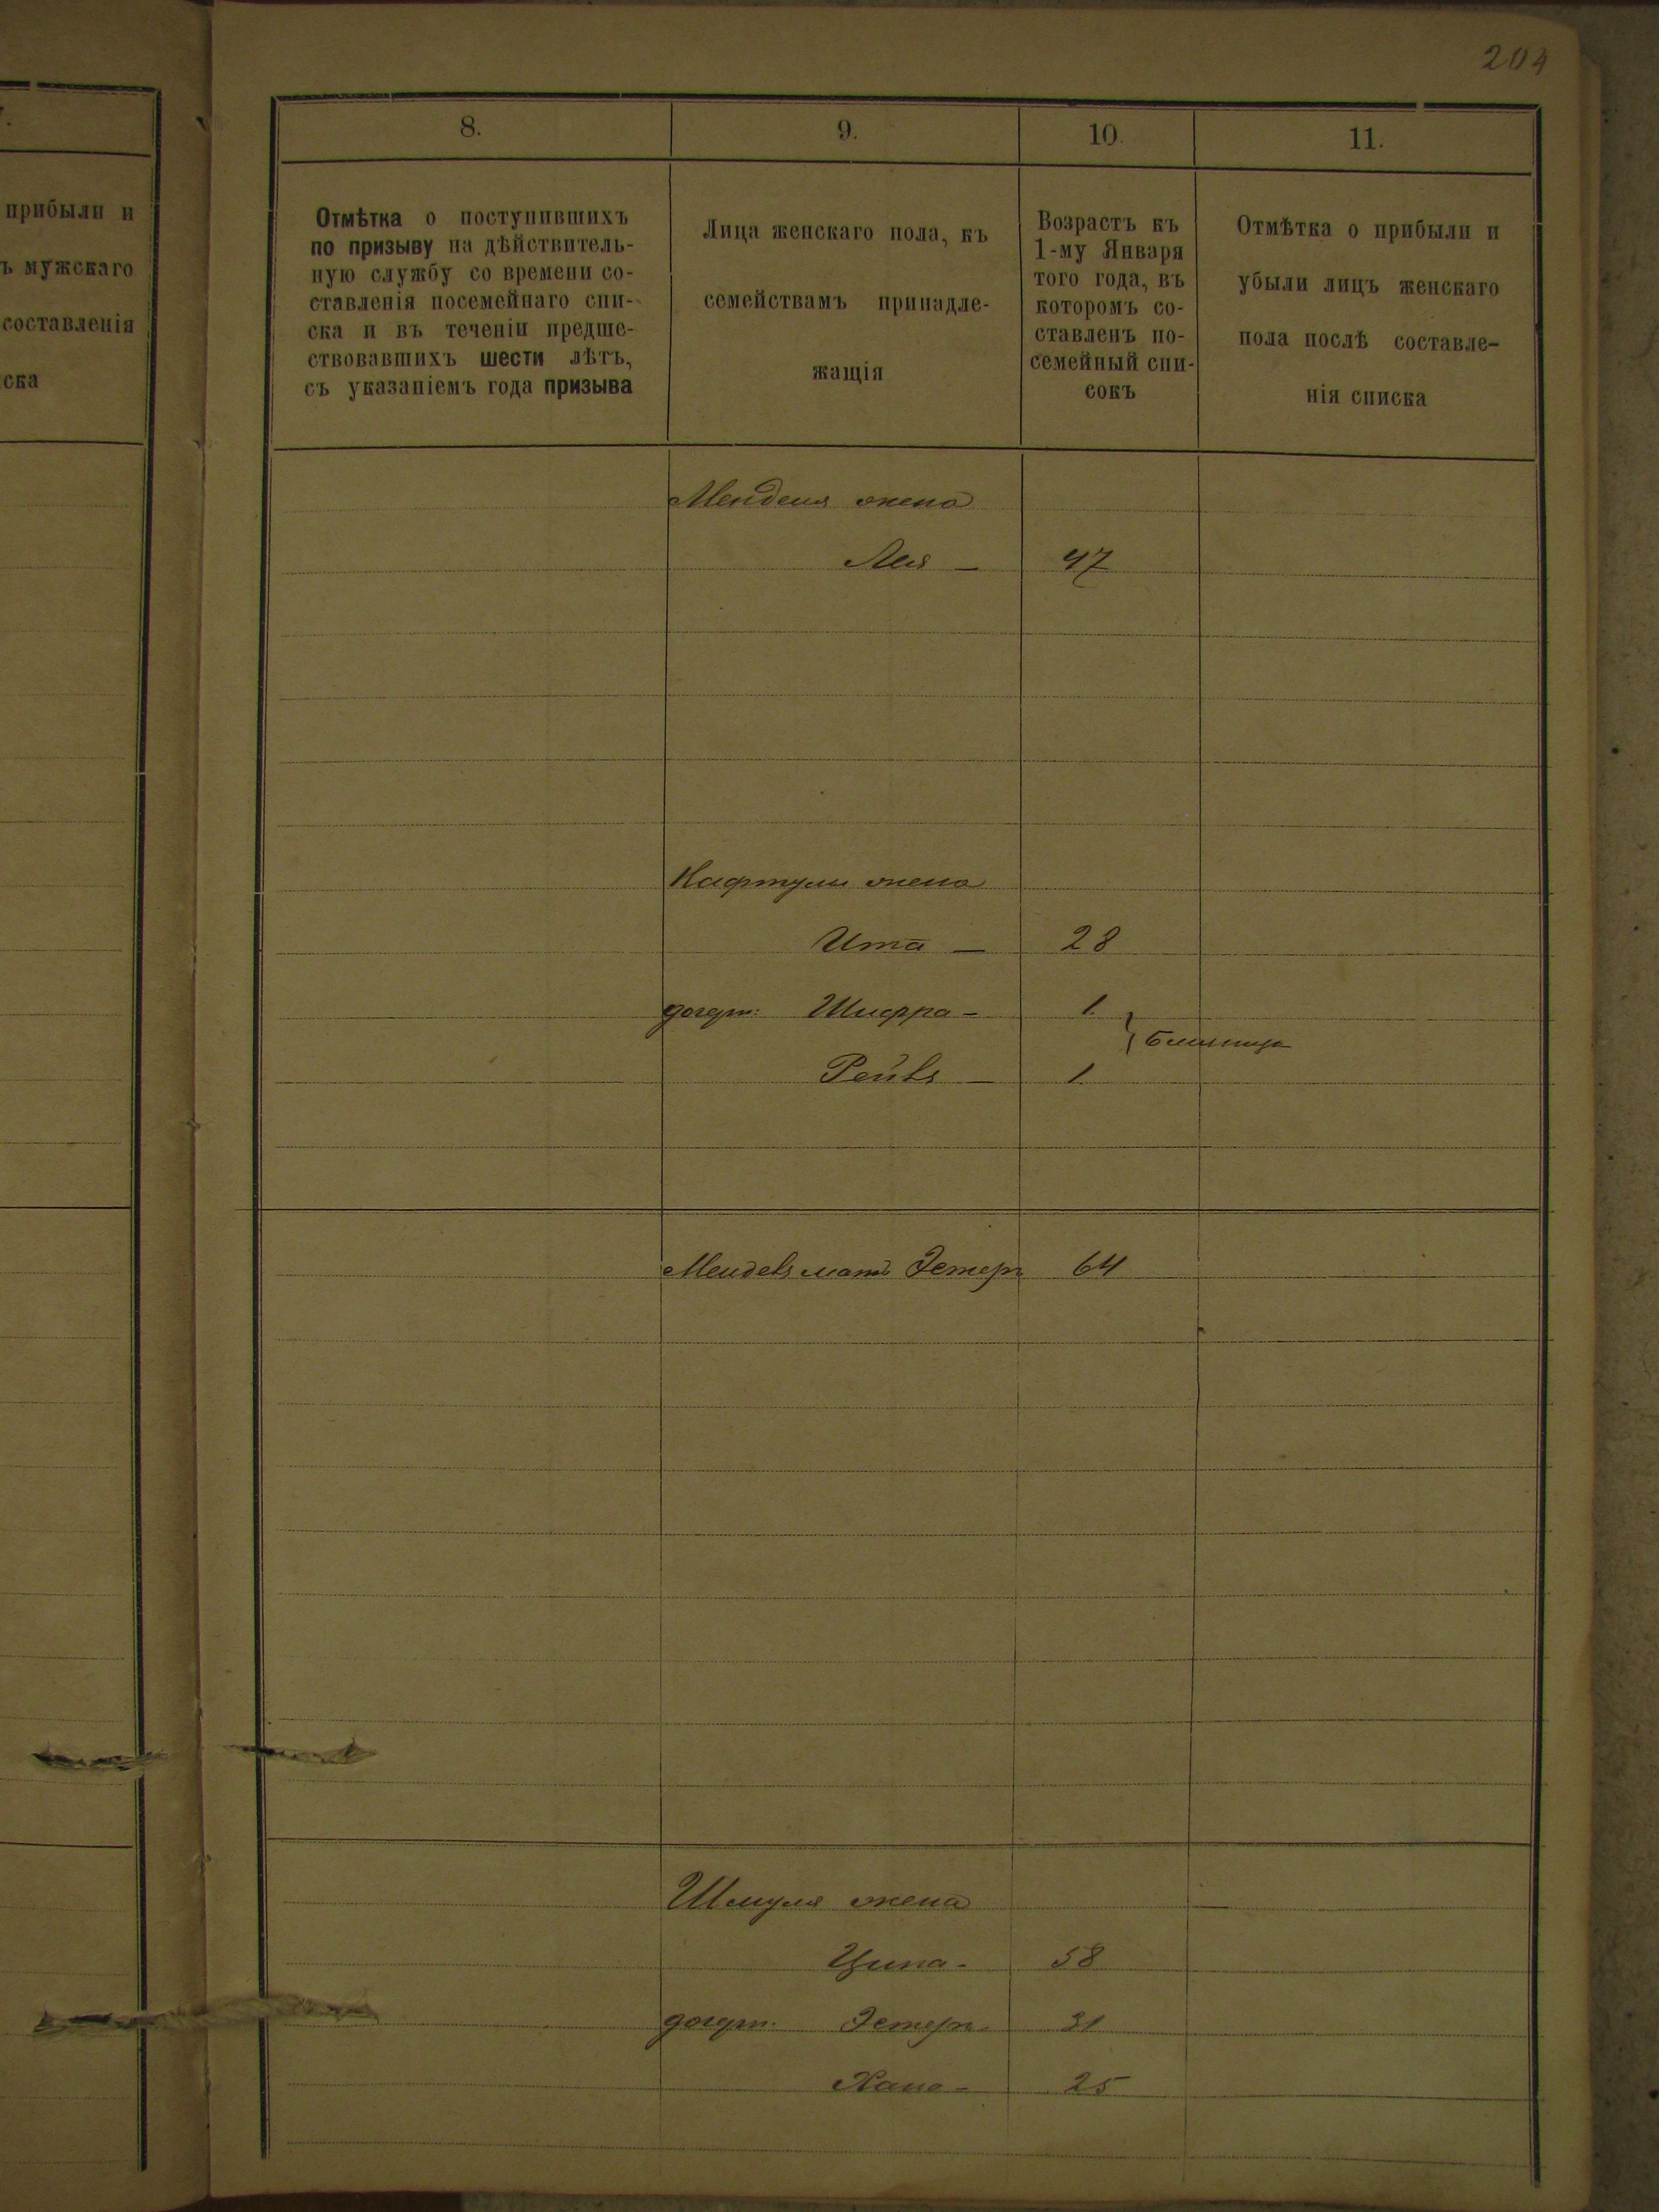 204
7.
прибыли и
ъ мужскаго
составленія
ска
8.
9.
10.
11.
Отмѣтка о поступившихъ
по призыву на дѣйствитель-
ную службу со времени со-
ставленія посемейнаго спи-
ска и въ теченіи предше-
ствовавшихъ шести лѣтъ,
съ указаніемъ года призыва
Лица женскаго пола, къ
семействамъ принадле-
жащія
Возрастъ къ
1-му Января
того года, въ
которомъ со-
ставленъ по-
семейный спи-
сокъ
Отмѣтка о прибыли и
убыли лицъ женскаго
пола послѣ составле-
нія списка
Менделя жена
Лея — 47
Нафтули жена
Ита — 28
Шифра — 1
Рейвя — 1
мать Эстеръ 64
Шмуля жена
Ципа - 58
Эстеръ 31
Хана - 25